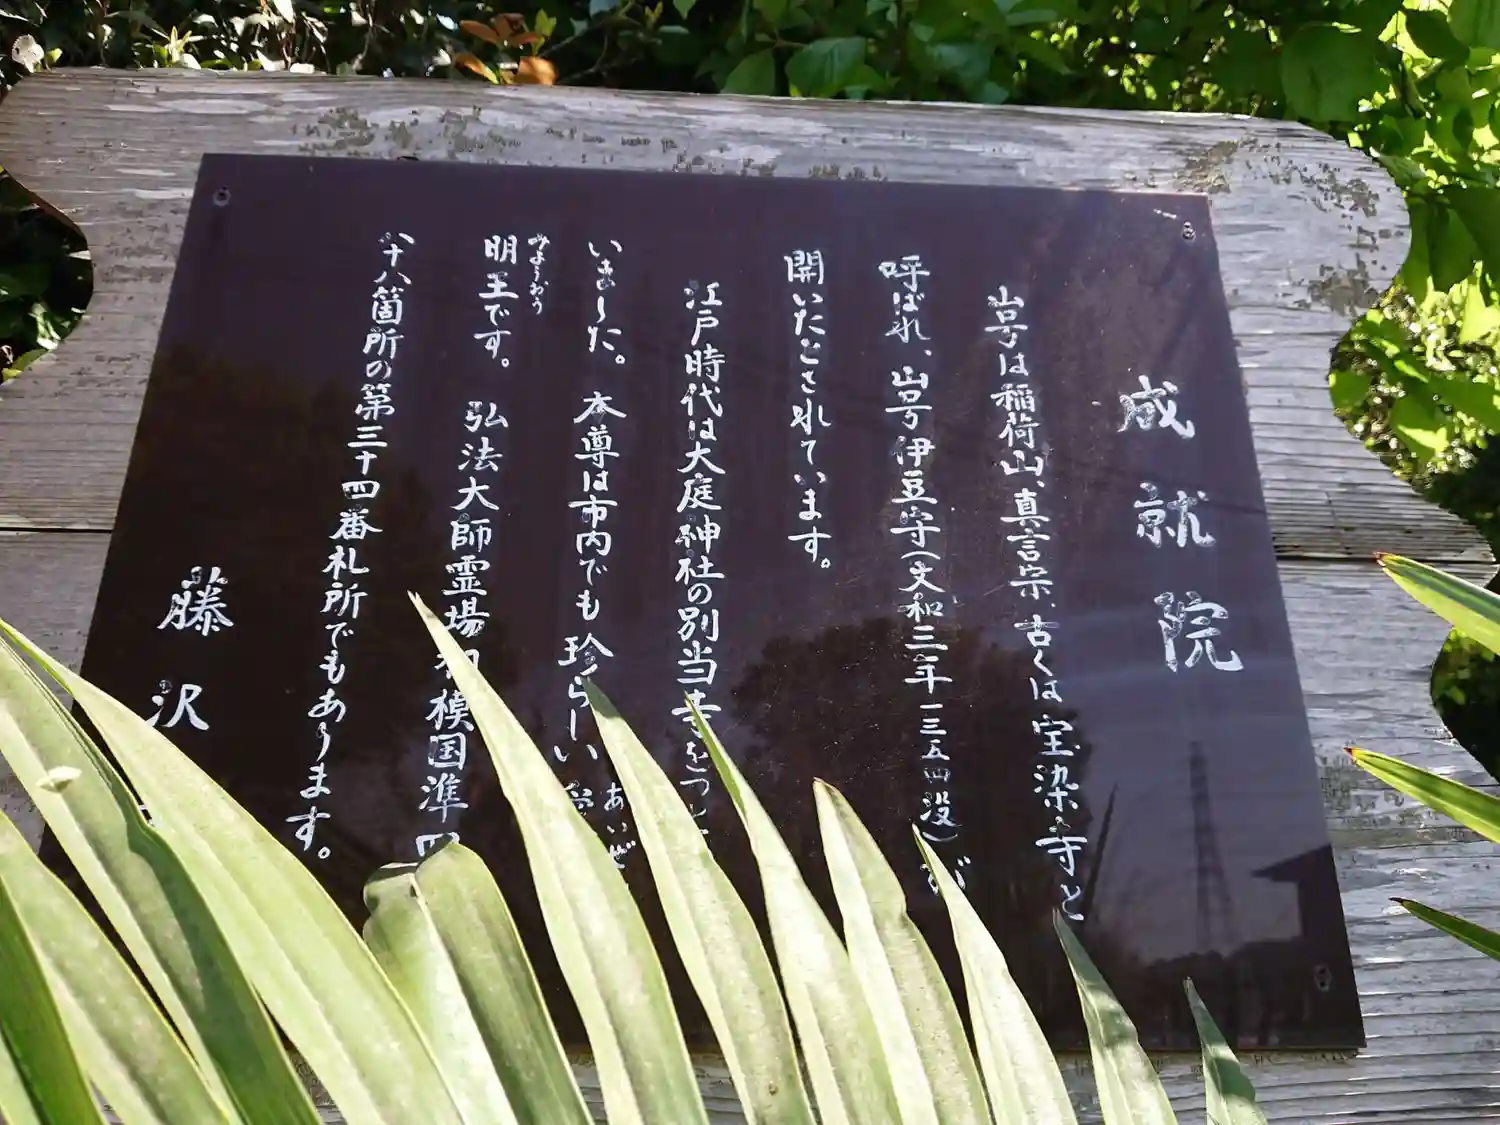 成就院
山号は稲荷山、真言宗、古くは宝染寺と
呼ばれ、山号伊豆守(文和三年一三五四没)が
開いたとされています。
江戸時代は大庭神社の別当寺をつと
いました。本尊は市内でも珍らしい
あいぜ
みょうおう
明王です。弘法大師霊場相模国準四
八十八箇所の第三十四番札所でもあります。
藤沢